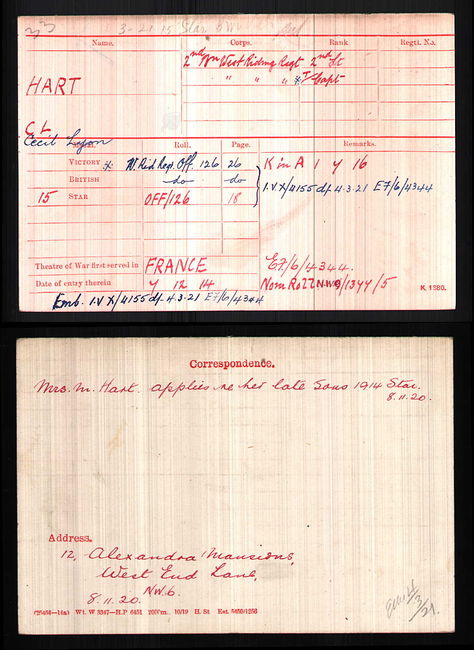 3-21 15 Star
Name. Corps. Rank Regtl. No.
HART 2nd Bn West Riding Regt 2nd Lt
" " " " * T/Capt
C L
Cecil Lyon
Roll. Page. Remarks.
VICTORY * W. Rid. Regt. Off. 126 26 K in A 1 7 16
BRITISH -do- -do- I.V.X/4155 d/ 4.3.21 EF/6/4344
15 STAR OFF/126 18
Theatre of War first served in FRANCE EF/6/4344.
Date of entry therein 7 12 14 Nom Roll NW9/1377/5 K. 1380.
Emb. I.V.X/4155 d/ 4.3.21 EF/6/4344
Correspondence.
Mrs. M. Hart. applies re her late Sons 1914 Star.
8.11.20.
Address.
12, Alexandra Mansions,
West End Lane,
N.W.6.
8.11.20.
(25454—14a) Wt. W 3347—H.P 6451 2000m. 10/19 H. St Est. 5459/1256